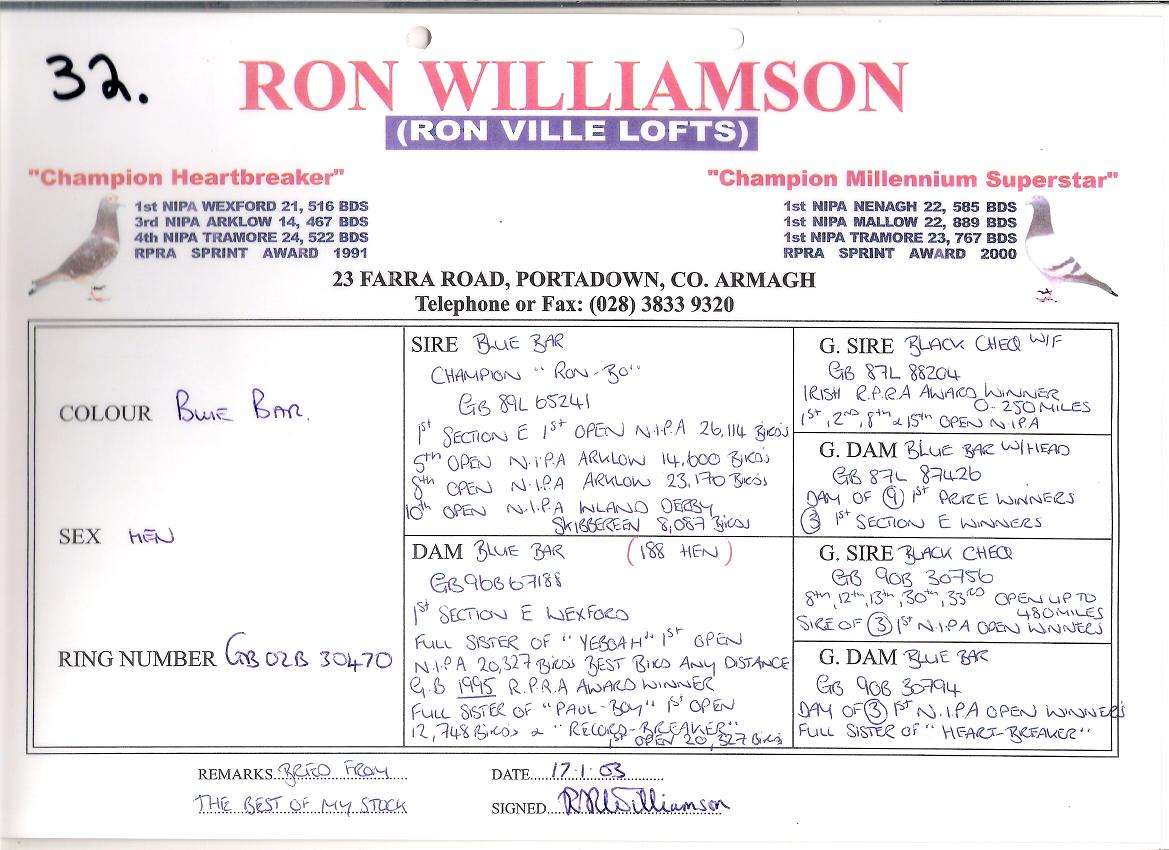 32.
RON WILLIAMSON
(RON VILLE LOFTS)
"Champion Heartbreaker"
1st NIPA WEXFORD 21, 516 BDS
3rd NIPA ARKLOW 14, 467 BDS
4th NIPA TRAMORE 24, 522 BDS
RPRA SPRINT AWARD 1991
"Champion Millennium Superstar"
1st NIPA NENAGH 22, 585 BDS
1st NIPA MALLOW 22, 889 BDS
1st NIPA TRAMORE 23, 767 BDS
RPRA SPRINT AWARD 2000
23 FARRA ROAD, PORTADOWN, CO. ARMAGH
Telephone or Fax: (028) 3833 9320
COLOUR BLUE BAR.
SEX HEN
RING NUMBER GB 02B 30470
SIRE BLUE BAR
CHAMPION "RON-BO"
GB 89L 65241
1st SECTION E 1st OPEN N.I.P.A 26,114 BIRDS
5th OPEN N.I.P.A ARKLOW 14,600 BIRDS
8th OPEN N.I.P.A ARKLOW 23,170 BIRDS
10th OPEN N.I.P.A INLAND DERBY
SKIBBEREEN 8,087 BIRDS
DAM BLUE BAR (188 HEN)
GB96B67188
1st SECTION E WEXFORD
FULL SISTER OF "YEBOAH" 1st OPEN
N.I.P.A 20,327 BIRDS BEST BIRD ANY DISTANCE
G.B 1995 R.P.R.A AWARD WINNER
FULL SISTER OF "PAUL-BOY" 1st OPEN
12,748 BIRDS & "RECORD-BREAKER"
1st OPEN 20,327 BIRDS
G. SIRE BLACK CHEQ W/F
GB 87L 88204
IRISH R.P.R.A AWARD WINNER
0-250 MILES
1st, 2nd, 8th & 15th OPEN N.I.P.A
G. DAM BLUE BAR W/HEAD
GB 87L 87426
DAM OF 9 1st PRIZE WINNERS
3 1st SECTION E WINNERS
G. SIRE BLACK CHEQ
GB 90B 30756
8th, 12th, 13th, 30th, 33rd OPEN UP TO
480 MILES
SIRE OF 3 1st N.I.P.A OPEN WINNERS
G. DAM BLUE BAR
GB 90B 30794
DAM OF 3 1st N.I.P.A OPEN WINNERS
FULL SISTER OF "HEART-BREAKER"
REMARKS BRED FROM
THE BEST OF MY STOCK
DATE 17.1.03
SIGNED R.R. Williamson